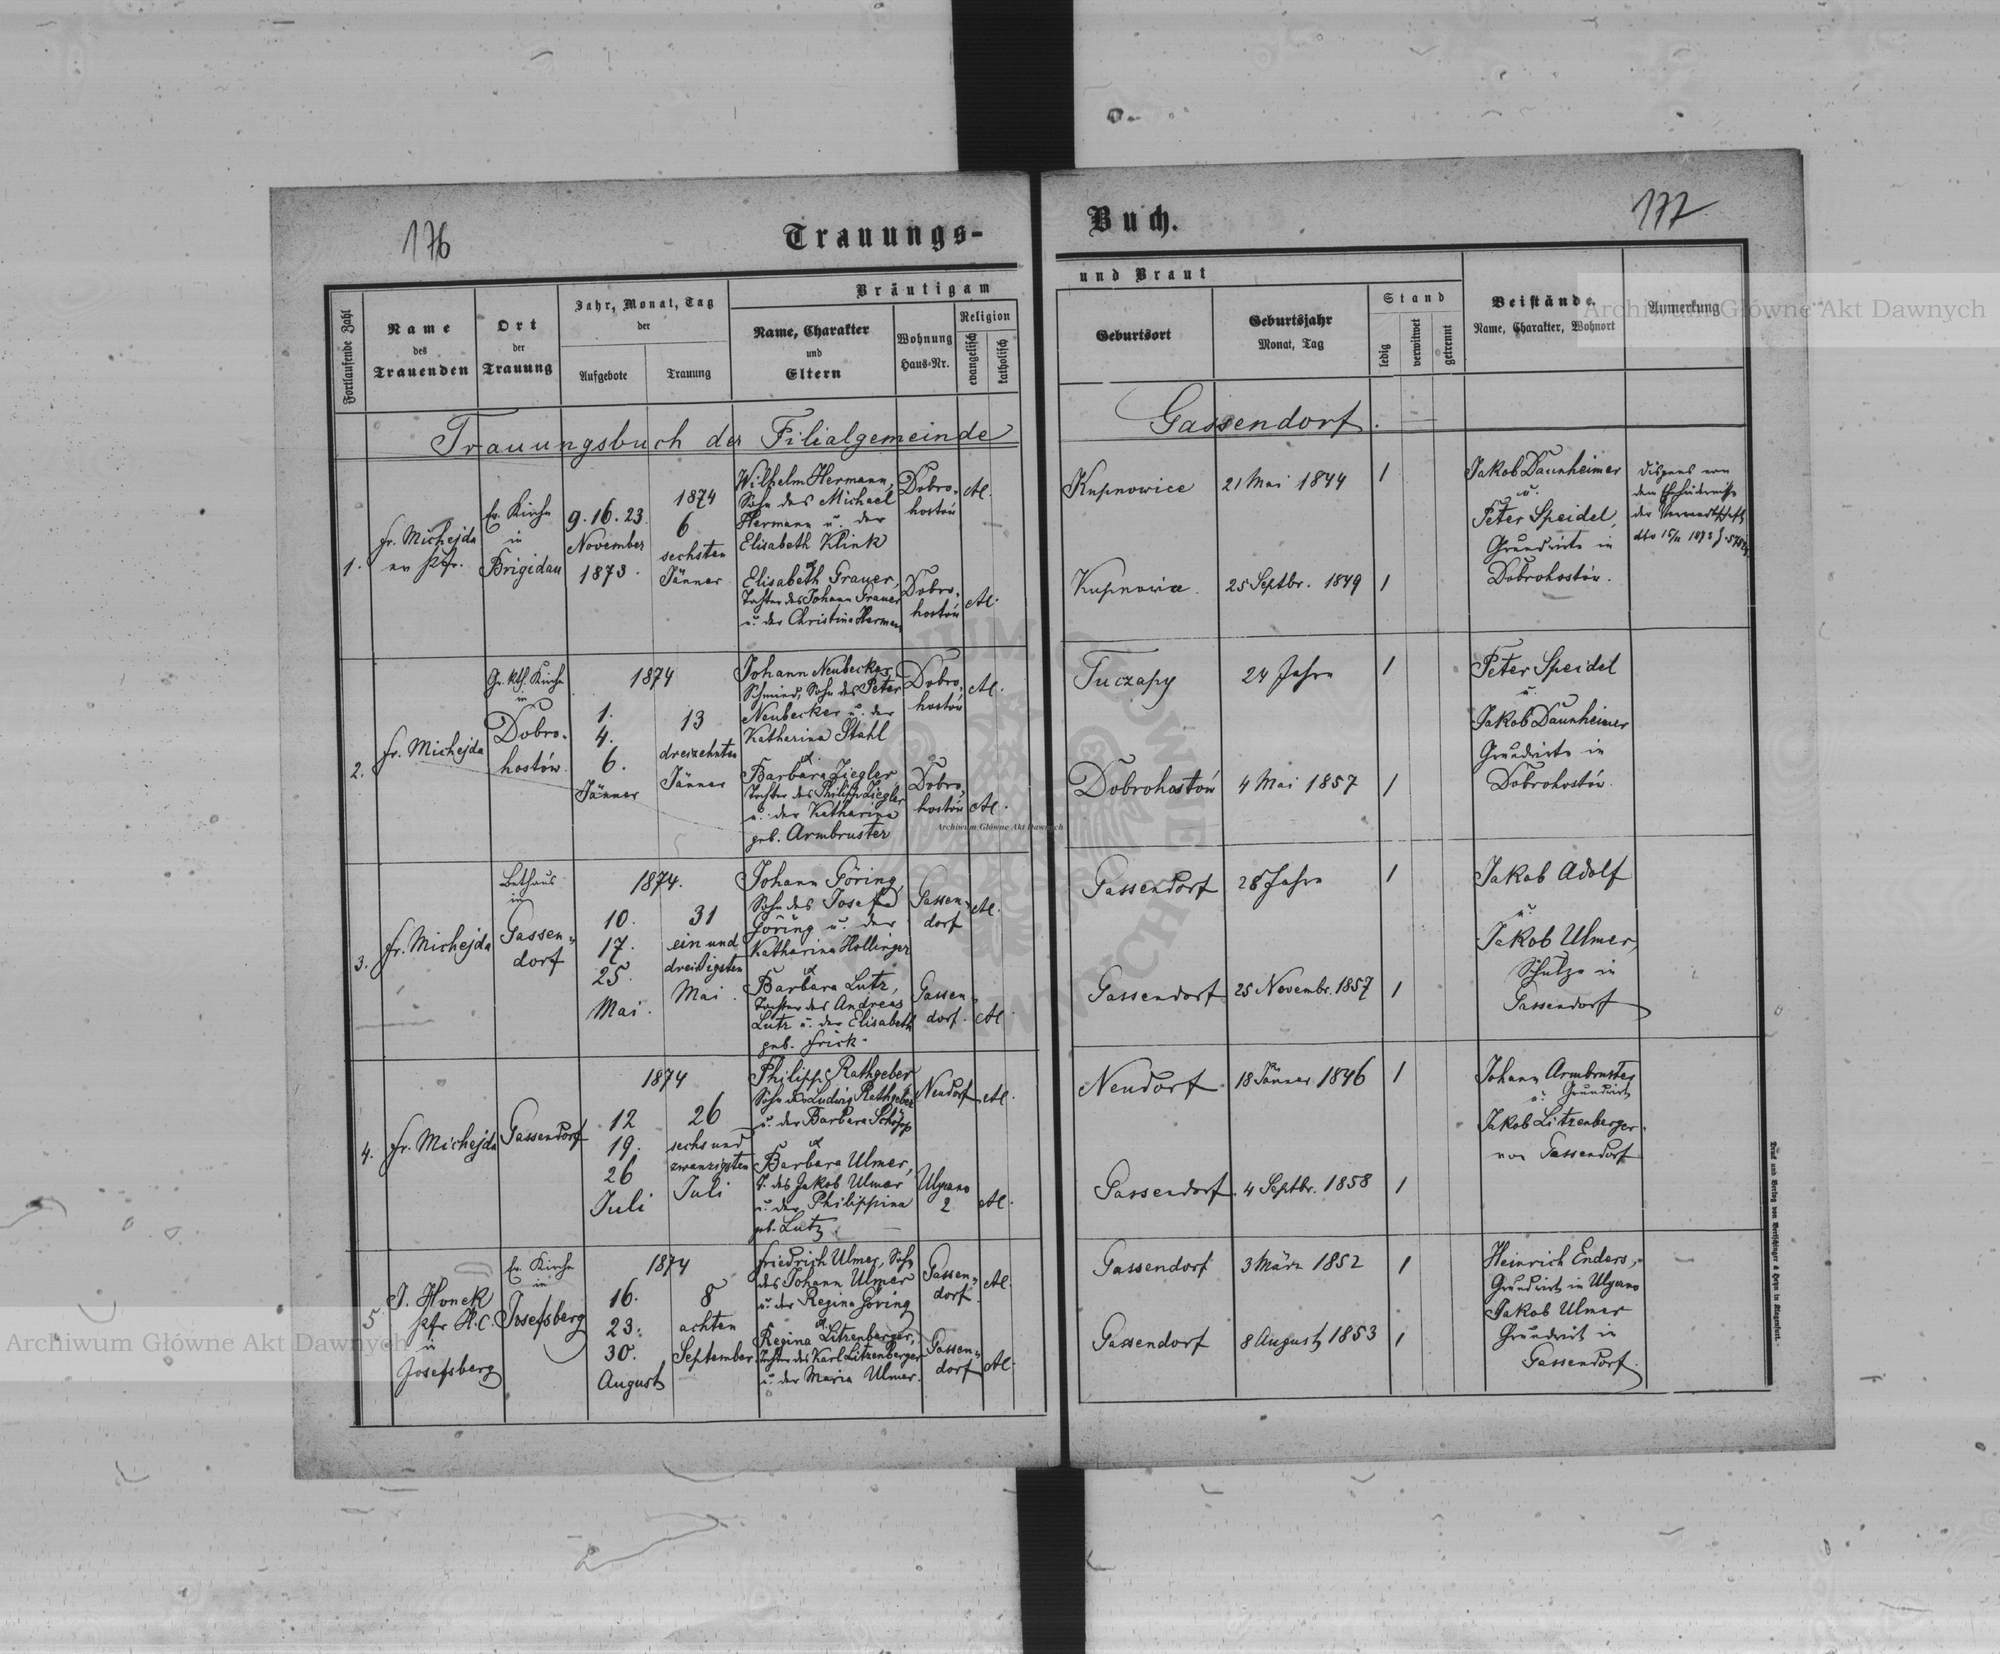 176
Trauungs-
Fortlaufende Zahl
Name
des
Trauenden
Ort
der
Trauung
Jahr, Monat, Tag
der
Aufgebote
Trauung
Bräutigam
Name, Charakter
und
Eltern
Wohnung
Haus-Nr.
Religion
evangelisch
katholisch
Trauungsbuch der Filialgemeinde
1.
Fr. Michejda
ev Pfr.
Ev. Kirche
in
Brigidau
9. 16. 23.
November
1873.
1874
6
sechsten
Jänner
Wilhelm Hermann,
Sohn des Michael
Hermann u. der
Elisabeth Klink
Dobro-
hostów
Al.
Elisabeth Grauer,
Tochter des Johann Grauer
u. der Christina Hermann
Dobro-
hostów
Al.
2.
Fr. Michejda
Gr. kth. Kirche
in
Dobro-
hostów.
1874
1.
4.
6.
Jänner
13
dreizehnten
Jänner
Johann Neubecker,
Schmied, Sohn des Peter
Neubecker u. der
Katharina Stahl
Dobro-
hostów
Al.
Barbara Ziegler
Tochter des Philipp Ziegler
u. der Katharina
geb. Armbruster
Dobro-
hostów
Al.
3.
Fr. Michejda
Bethaus
in
Gassen-
dorf
1874.
10.
17.
25.
Mai.
31
ein und
dreißigsten
Mai.
Johann Göring,
Sohn des Josef
Göring u. der
Katharina Hollinger
Gassen-
dorf
Al.
Barbara Lutz,
Tochter des Andreas
Lutz u. der Elisabeth
geb. Frick.
Gassen-
dorf.
Al.
4.
Fr. Michejda
Gassendorf
1874
12
19.
26
Juli
26
sechs und
zwanzigsten
Juli
Philipp Rathgeber
Sohn des Ludwig Rathgeber
u. der Barbara Schöpp
Neudorf
Al.
Barbara Ulmer,
T. des Jakob Ulmer
u. der Philippina
geb. Lutz
Ugano
2
Al.
5
J. Honek
Pfr H.C.
in
Josefsberg
Ev. Kirche
in
Josefsberg
1874
16.
23.
30.
August
8
achten
September
Friedrich Ulmer, Sohn
des Johann Ulmer
u. der Regina Göring
Gassen-
dorf.
Al.
Regina Litzenberger,
Tochter des Karl Litzenberger
u. der Maria Ulmer.
Gassen-
dorf
Al.
177
Buch.
und Braut
Geburtsort
Geburtsjahr
Monat, Tag
Stand
ledig
verwitwet
getrennt
Beistände
Name, Charakter, Wohnort
Anmerkung
Gassendorf.
Kupnowice
21 Mai 1844
1
Jakob Daunheimer
u.
Peter Speidel,
Grundwirte in
Dobrohostów.
Dispens von
dem Ehehindernisse
der Verwandtschaft
Kupnowice.
25 Septbr. 1849
1
Tuczapy
24 Jahre
1
Peter Speidel
u.
Jakob Daunheimer
Grundwirte in
Dobrohostów.
Dobrohostów
4 Mai 1857
1
Gassendorf
28 Jahre
1
Jakob Adolf
u.
Jakob Ulmer,
Schulze in
Gassendorf
Gassendorf
25 Novembr. 1857
1
Neudorf
18 Jänner 1846
1
Johann Armbruster
Grundwirt
u.
Jakob Litzenberger
von Gassendorf
Gassendorf.
4 Septbr. 1858
1
Gassendorf
3 März 1852
1
Heinrich Enders,
Grundwirt in Ugano
Jakob Ulmer
Grundwirt in
Gassendorf.
Gassendorf
8 August 1853
1
Druck und Verlag von Bertschinger & Heyn in Klagenfurt.
Archiwum Główne Akt Dawnych
Archiwum Główne Akt Dawnych
Archiwum Główne Akt Dawnych